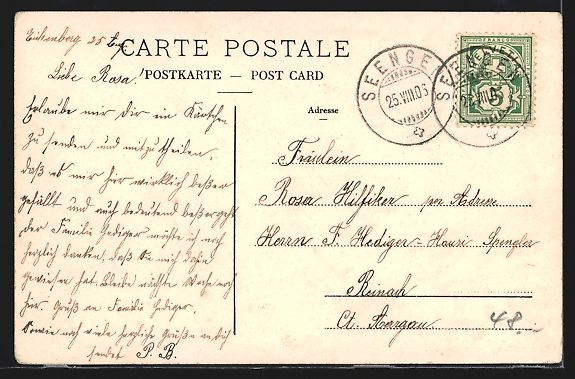 CARTE POSTALE
POSTKARTE — POST CARD
Adresse
SEENGEN
25.VIII.05
SEENGEN
25.VIII.05
FRANCO
HELVETIA
5
25
Liebe Rosa!
Erlaube mir dir ein Kärtchen
zu senden und mitzutheilen,
daß es mir hier wirklich beßer
gefällt und auch bedeutend beßer geht
der Familie Hediger möchte ich noch
herzlich danken, daß Sie mich dahin
gewiesen hat. Bleibe nächste Woche noch
hier. Gruß an Familie Hediger.
Sowie noch viele herzliche Grüße an dich
sendet P. B.
Fräulein
Rosa Hilfiker per Adresse
Herrn F. Hediger-Hauri Spengler
Reinach
Ct. Aargau
48.-